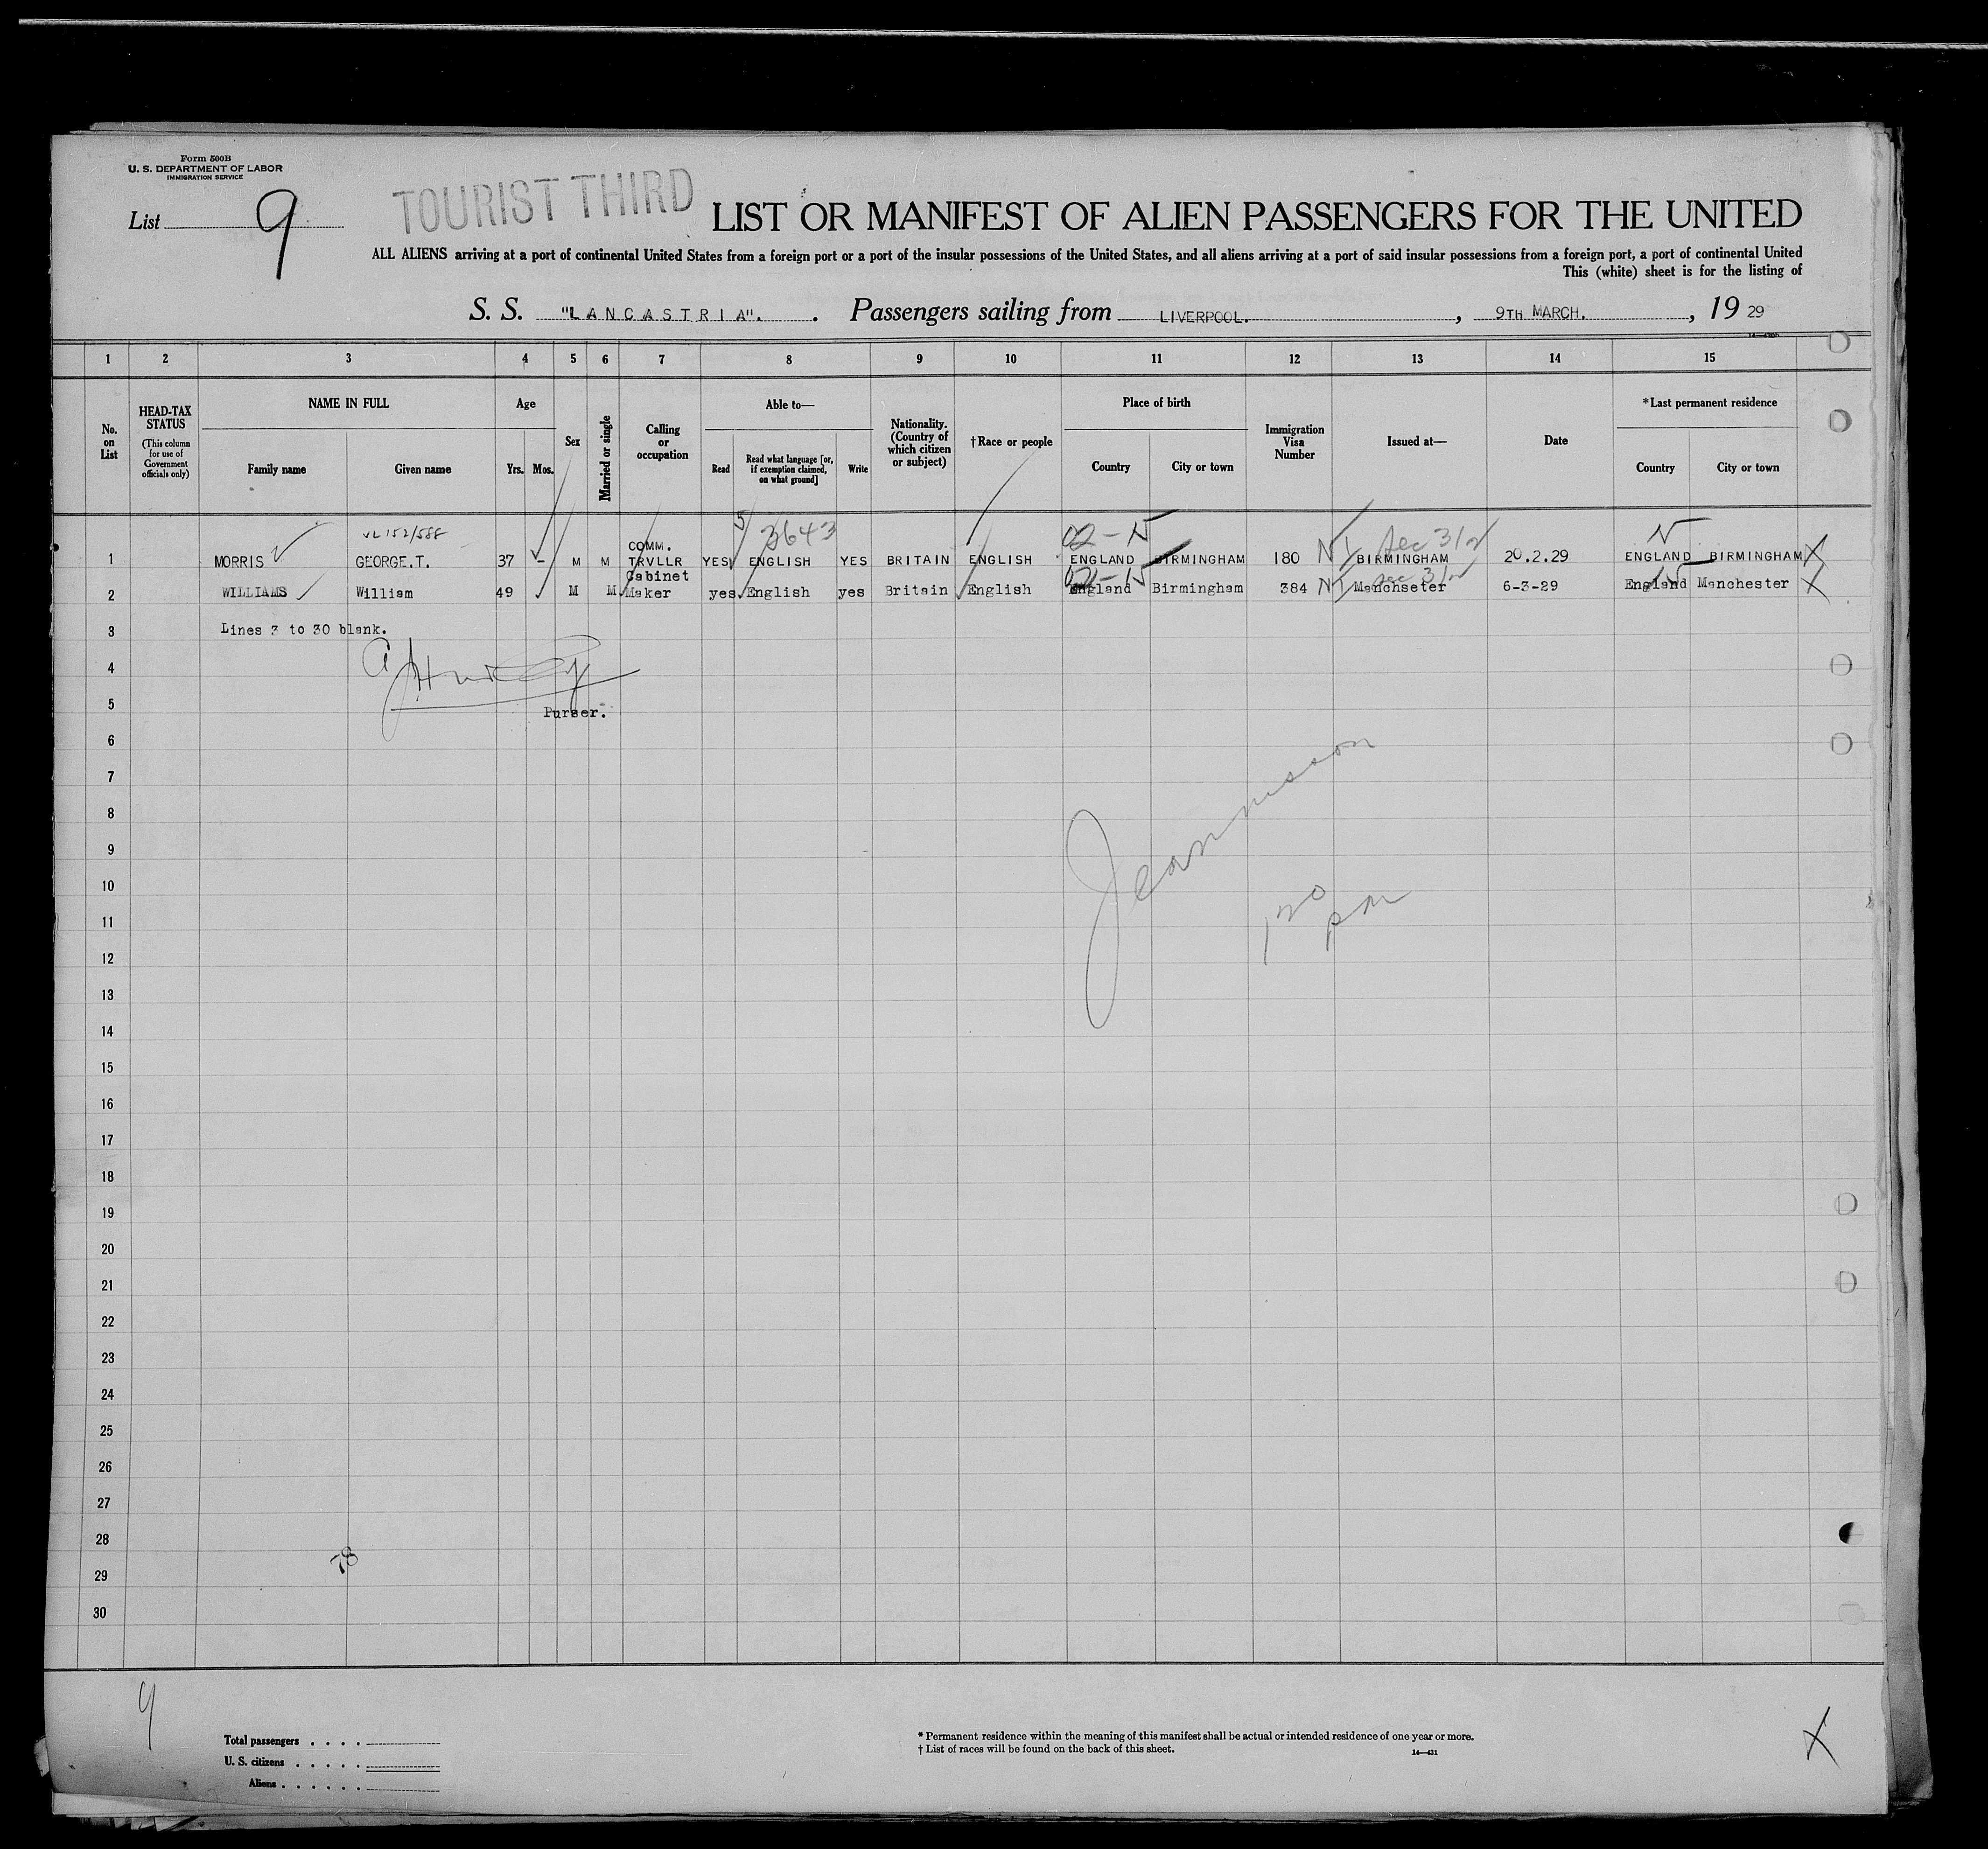 Form 500B
U. S. DEPARTMENT OF LABOR
IMMIGRATION SERVICE
List 9
TOURIST THIRD
LIST OR MANIFEST OF ALIEN PASSENGERS FOR THE UNITED
ALL ALIENS arriving at a port of continental United States from a foreign port or a port of the insular possessions of the United States, and all aliens arriving at a port of said insular possessions from a foreign port, a port of continental United
This (white) sheet is for the listing of
S. S. "LANCASTRIA". Passengers sailing from LIVERPOOL. , 9TH MARCH. , 19 29
1 2 3 4 5 6 7 8 9 10 11 12 13 14 15
No. on List
HEAD-TAX STATUS
(This column for use of Government officials only)
NAME IN FULL
Family name Given name
Age
Yrs. Mos.
Sex
Married or single
Calling or occupation
Able to—
Read
Read what language [or, if exemption claimed, on what ground]
Write
Nationality. (Country of which citizen or subject)
†Race or people
Place of birth
Country City or town
Immigration Visa Number
Issued at—
Date
*Last permanent residence
Country City or town
2643 02-N N
1 MORRIS GEORGE.T. 37 - M M COMM. TRVLLR YES ENGLISH YES BRITAIN ENGLISH ENGLAND BIRMINGHAM 180 BIRMINGHAM 20.2.29 ENGLAND BIRMINGHAM X
2 WILLIAMS William 49 M M Cabinet Maker yes English yes Britain English England Birmingham 384 Manchseter 6-3-29 England Manchester X
3 Lines 3 to 30 blank.
4
5 Purser.
6
7
8
9
10
11
12
13
14
15
16
17
18
19
20
21
22
23
24
25
26
27
28
78
29
30
9
X
Total passengers . . . .
U. S. citizens . . . . .
Aliens . . . . . .
* Permanent residence within the meaning of this manifest shall be actual or intended residence of one year or more.
† List of races will be found on the back of this sheet.
14—431